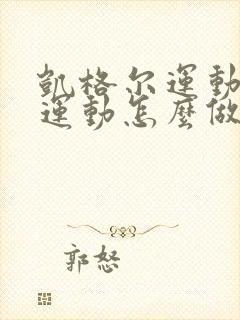 凱格尔運動
運動怎麼做
郭怒